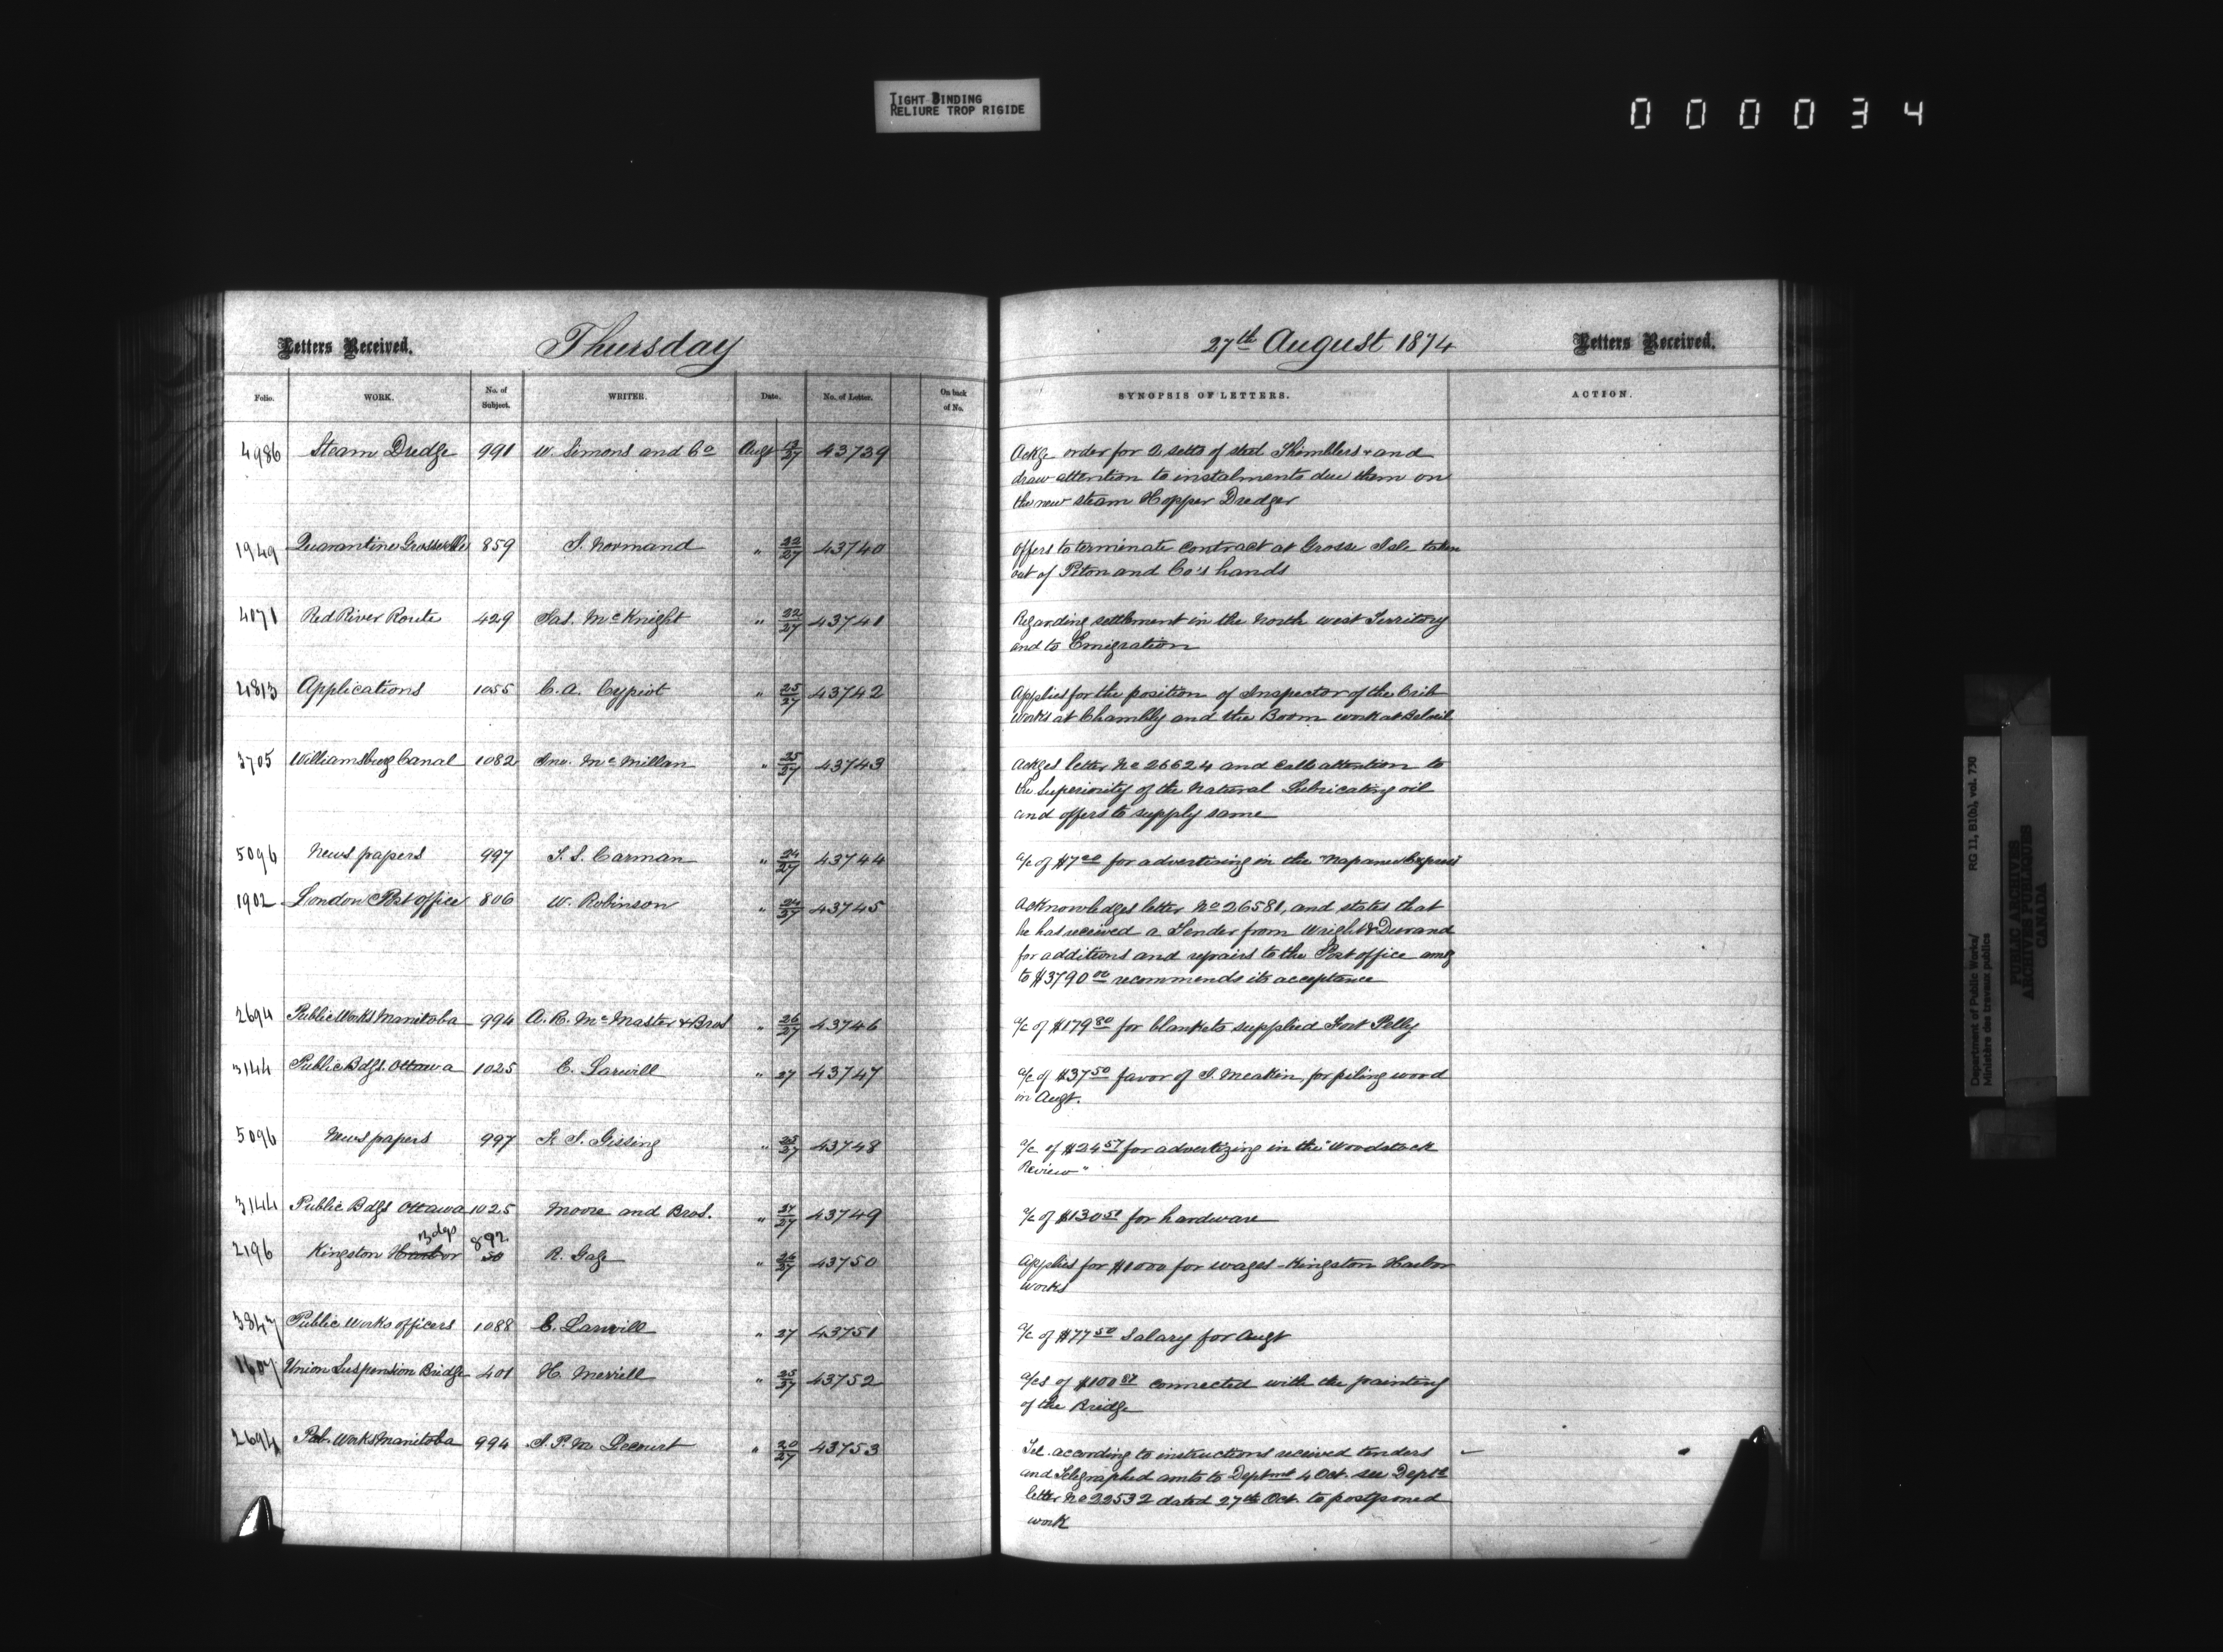 TIGHT BINDING
RELIURE TROP RIGIDE
000034
Letters Received.
Thursday
27th August 1874
Letters Received.
Folio. WORK. No. of Subject. WRITER. Date. No. of Letter. On back of No. SYNOPSIS OF LETTERS. ACTION.
4986 Steam Dredge 991 W. Simons and Co Augt 13/27 43739 Ackge order for 2 setts of steel Thimblers + and
draw attention to instalments due them on
the new steam Hopper Dredger
1949 Quarantine Grosse Isle 859 S. Normand " 22/27 43740 offers to terminate contract at Grosse Isle taken
out of Piton and Co's hands
4071 Red River Route 429 Jas. McKnight " 22/27 43741 Regarding settlement in the North west Territory
and to Emigration
4813 Applications 1055 C. A. Cypiot " 25/27 43742 Applies for the position of Inspector of the Crib
works at Chambly and the Boom work at Belœil
3705 Williamsburg Canal 1082 Jno. McMillan " 25/27 43743 Ackges letter No 26624 and calls attention to
the superiority of the Natural Lubricating oil
and offers to supply same
5096 News papers 997 T. S. Carman " 24/27 43744 a/c of $7.00 for advertising in the "Napanee Express
1902 London Post office 806 W. Robinson " 24/27 43745 Acknowledges letter No 26581, and states that
he has received a Tender from Wright & Durand
for additions and repairs to the Post office amg
to $3790.00 recommends its acceptance
2694 Public Works Manitoba 994 A. R. McMaster & Bros " 26/27 43746 a/c of $179.80 for blankets supplied Fort Pelly
3144 Public Bdgs. Ottawa 1025 E. Larwill " 27 43747 a/c of $37.50 favor of S. Meakin, for piling wood
in Augt.
5096 News papers 997 K. S. Gissing " 25/27 43748 a/c of $24.57 for advertizing in the "Woodstock
Review"
3144 Public Bdgs Ottawa 1025 Moore and Bros. " 27/27 43749 a/c of $130.51 for hardware
Bdgs 892
2196 Kingston Harbor 50 R. Gage " 26/27 43750 Applies for $1000 for wages - Kingston Harbor
works
3847 Public Works officers 1088 E. Larwill " 27 43751 a/c of $77.50 Salary for Augt
1607 Union Suspension Bridge 401 H. Merrill " 25/27 43752 a/cs of $100.87 connected with the painting
of the Bridge
2694 Pub. Works Manitoba 994 J. P. M. Lecourt " 20/27 43753 Tel. according to instructions received tenders
and Telegraphed amts to Deptmt 4 Oct. see Depts
letter No 22532 dated 27th Oct. to postponed
work
Department of Public Works/ RG 11, B1(b), vol. 730
Ministère des travaux publics
PUBLIC ARCHIVES
ARCHIVES PUBLIQUES
CANADA